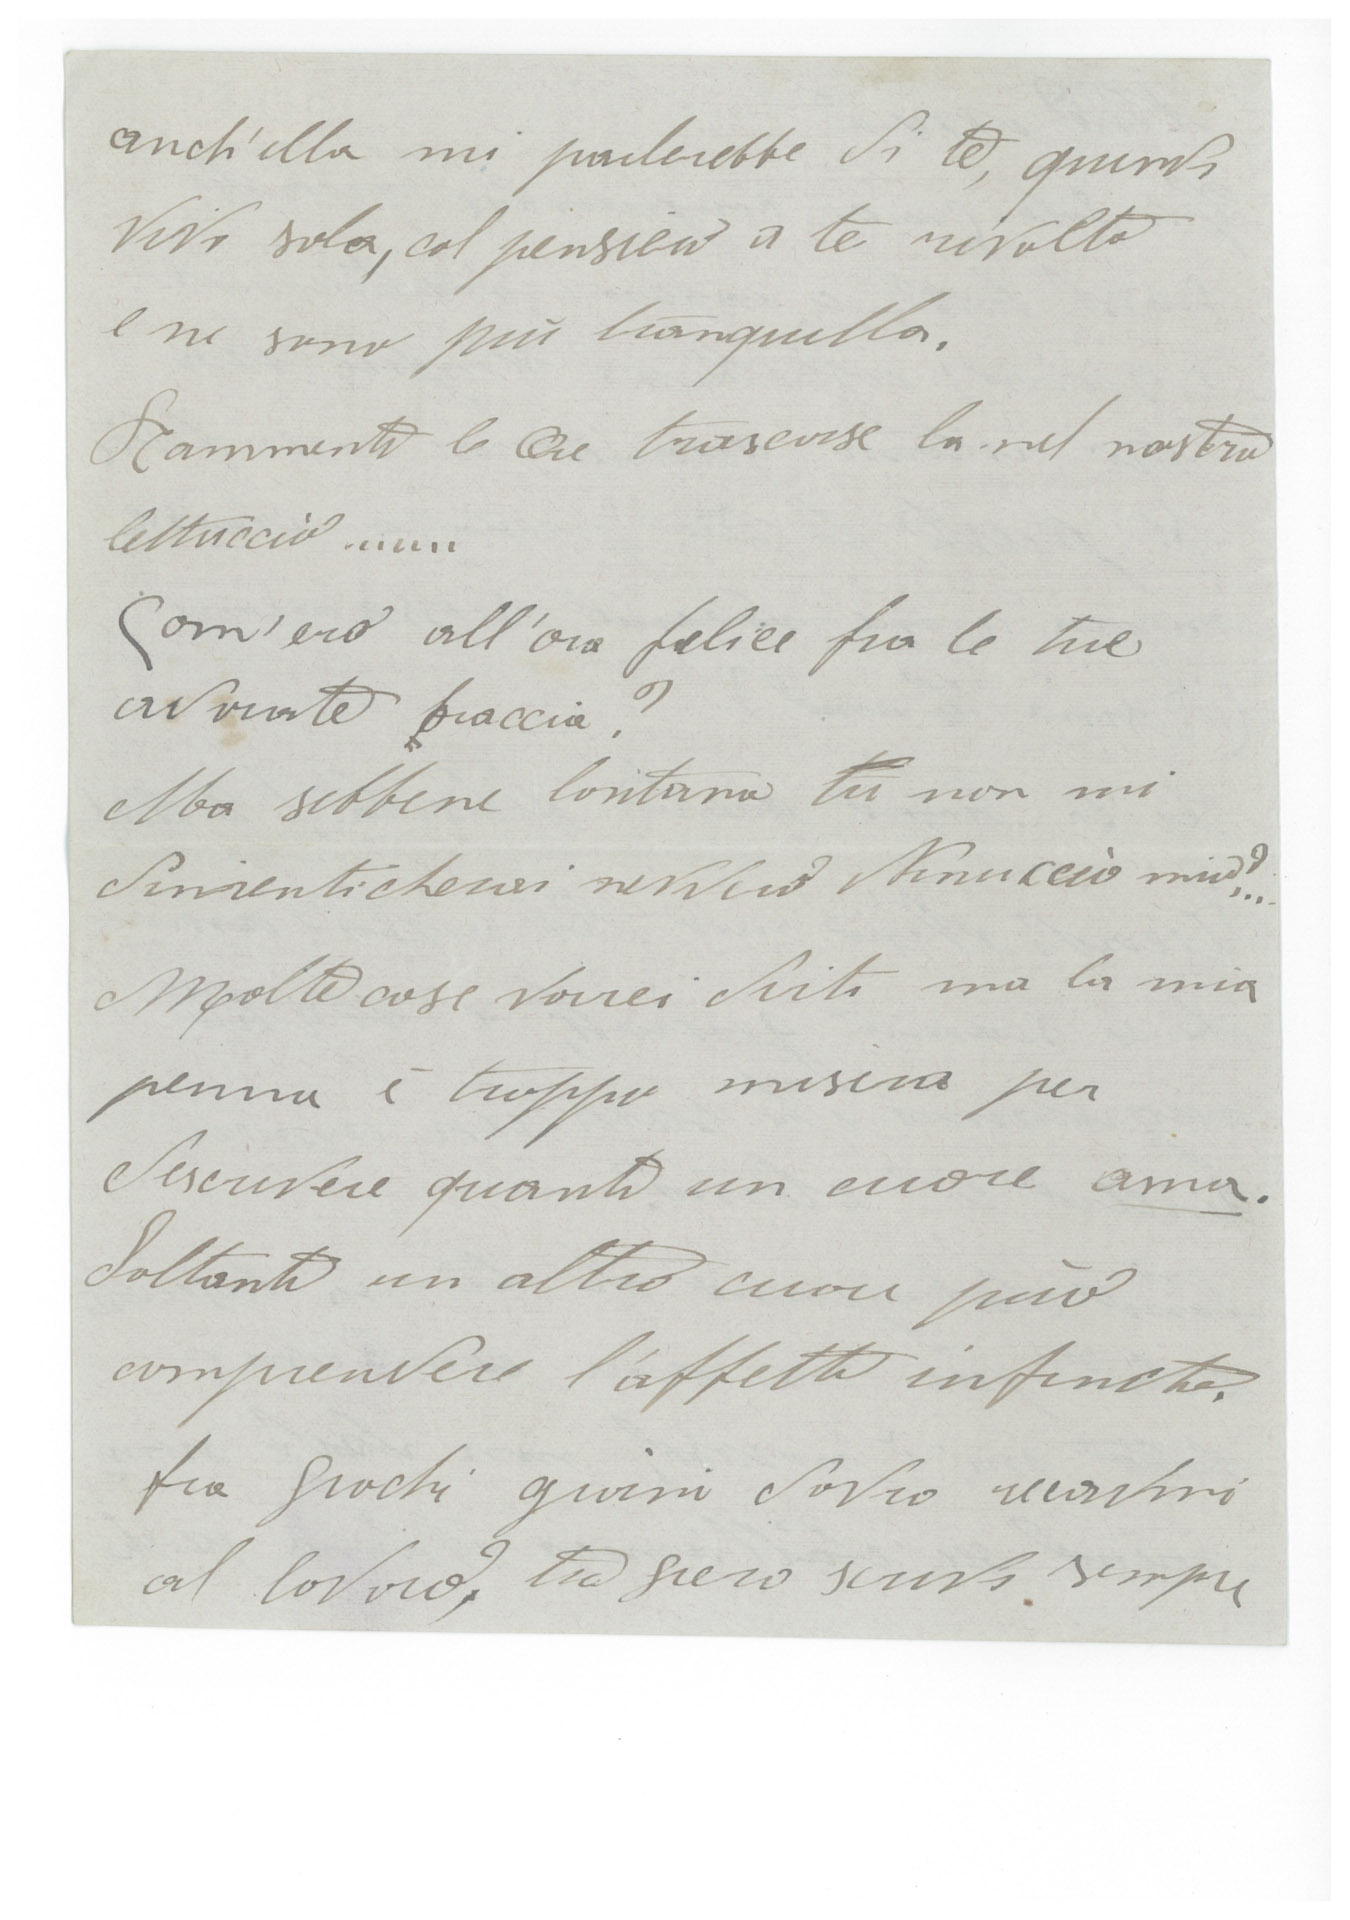 anch'ella mi parlerebbe di te, quindi
vivo sola, col pensiero a te rivolto
e ne sono più tranquilla.
Rammento le Ore trascorse la nel nostro
lettuccio.......
Com'ero all'ora felice fra le tue
adorate braccia?
Ma sebbene lontana tu non mi
dimenticherai nevvero Ninuccio mio?...
Molte cose vorrei dirti ma la mia
penna è troppo misera per
descrivere quanto un cuore ama.
Soltanto un altro cuore può
comprendere l'affetto infinito.
fra giochi giorni dovro recarmi
al lavoro, tu pero scrivi sempre